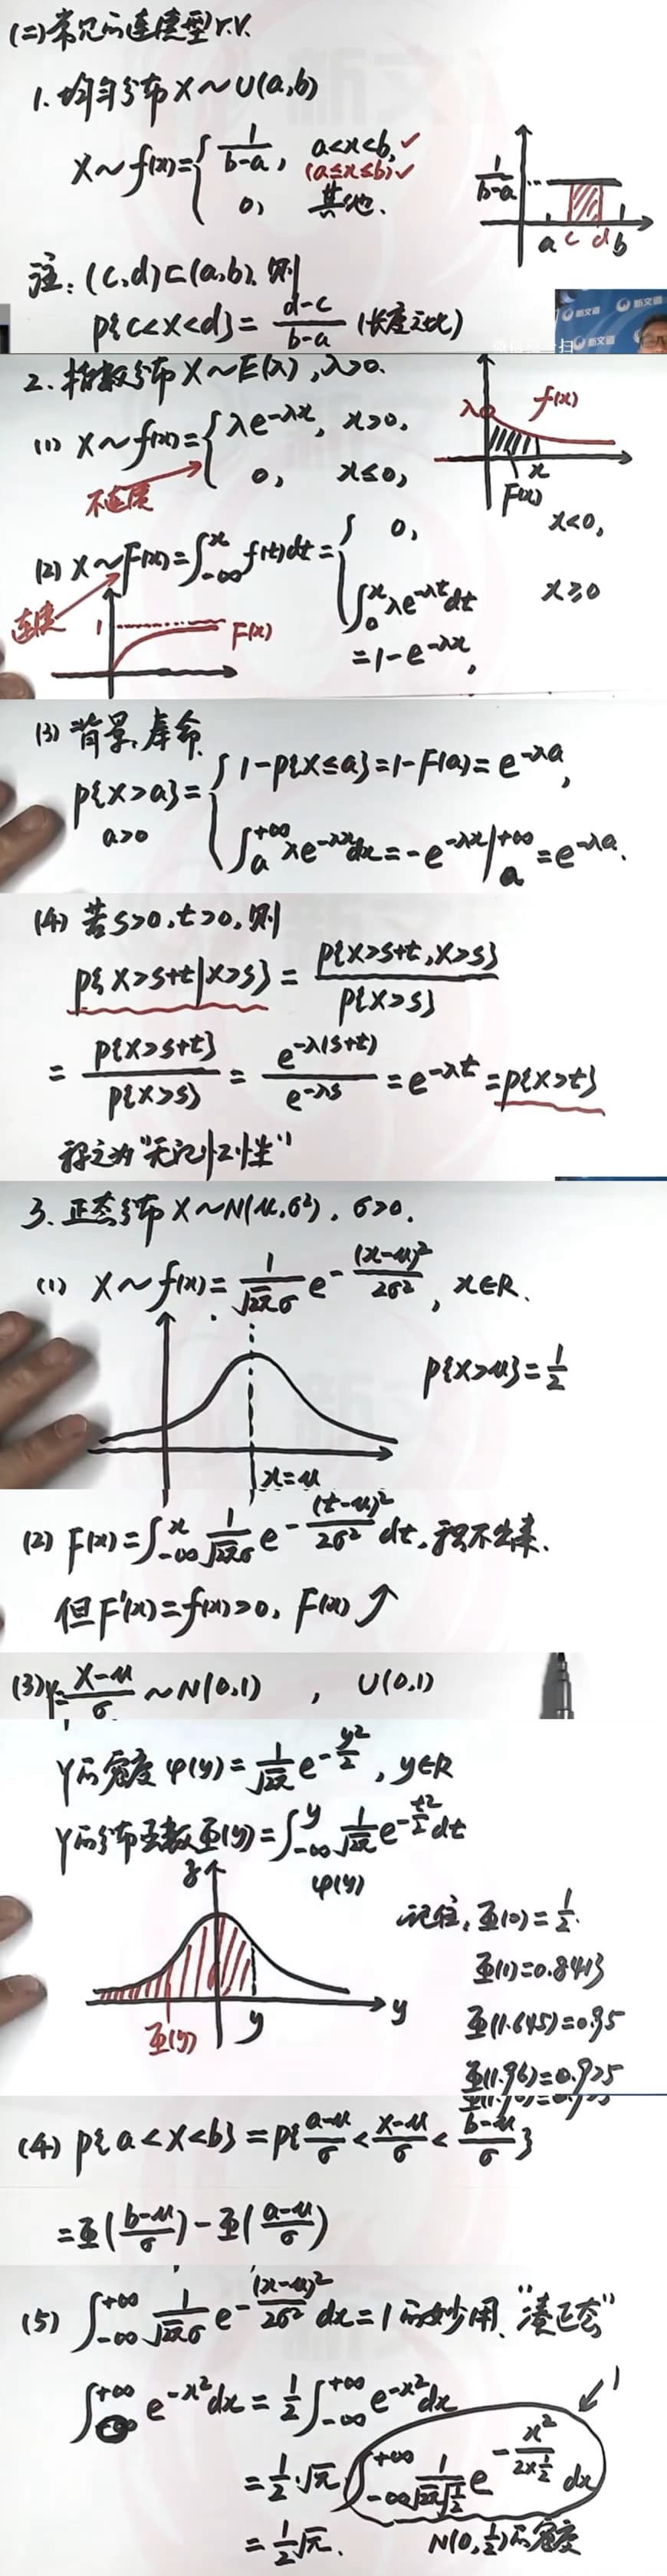 (二)常见的连续型r.v.
1. 均匀分布 X~U(a,b)
X~f(x)={ 1/(b-a), a<x<b,✓
(a≤x≤b)✓
0, 其他.
1/(b-a) a c d b
注: (c,d)⊂(a,b), 则
P{c<X<d}= (d-c)/(b-a) (长度之比)
新文道 新文道
新文道
扫
2. 指数分布 X~E(λ), λ>0.
(1) X~f(x)={ λe^{-λx}, x>0,
0, x≤0,
不连续
λ f(x)
x
F(x)
(2) X~F(x)=∫_{-∞}^{x} f(t)dt={ 0, x<0,
∫_0^x λe^{-λt}dt x≥0
=1-e^{-λx},
连续
1 F(x)
(3) 背景, 寿命.
P{X>a}={ 1-P{X≤a}=1-F(a)=e^{-λa},
a>0
∫_a^{+∞} λe^{-λx}dx=-e^{-λx}|_a^{+∞}=e^{-λa}.
(4) 若s>0,t>0, 则
P{X>s+t|X>s}= P{X>s+t,X>s}/P{X>s}
= P{X>s+t}/P{X>s} = e^{-λ(s+t)}/e^{-λs} =e^{-λt}=P{X>t}
称之为"无记忆性"
3. 正态分布 X~N(μ,σ²), σ>0.
(1) X~f(x)= 1/(√2π σ) e^{-(x-μ)²/2σ²}, x∈R.
P{X>μ}=1/2
x=μ
(2) F(x)=∫_{-∞}^{x} 1/(√2π σ) e^{-(t-μ)²/2σ²} dt, 积不出来.
但F'(x)=f(x)>0, F(x)↗
(3) Y=(X-μ)/σ ~N(0,1) , U(0,1)
Y的密度 φ(y)= 1/√2π e^{-y²/2}, y∈R
Y的分布函数Φ(y)=∫_{-∞}^{y} 1/√2π e^{-t²/2}dt
φ(y)
记住: Φ(0)=1/2.
Φ(1)=0.8413
Φ(y) y y
Φ(1.645)=0.95
Φ(1.96)=0.975
(4) P{a<X<b}=P{(a-μ)/σ<(X-μ)/σ<(b-μ)/σ}
=Φ((b-μ)/σ)-Φ((a-μ)/σ)
(5) ∫_{-∞}^{+∞} 1/(√2π σ) e^{-(x-μ)²/2σ²} dx=1的妙用. "凑正态"
∫^{+∞} e^{-x²}dx=1/2∫_{-∞}^{+∞} e^{-x²}dx
1
=1/2·√π ∫_{-∞}^{+∞} 1/(√2π √(1/2)) e^{-x²/(2×1/2)} dx
=1/2√π. N(0,1/2)的密度